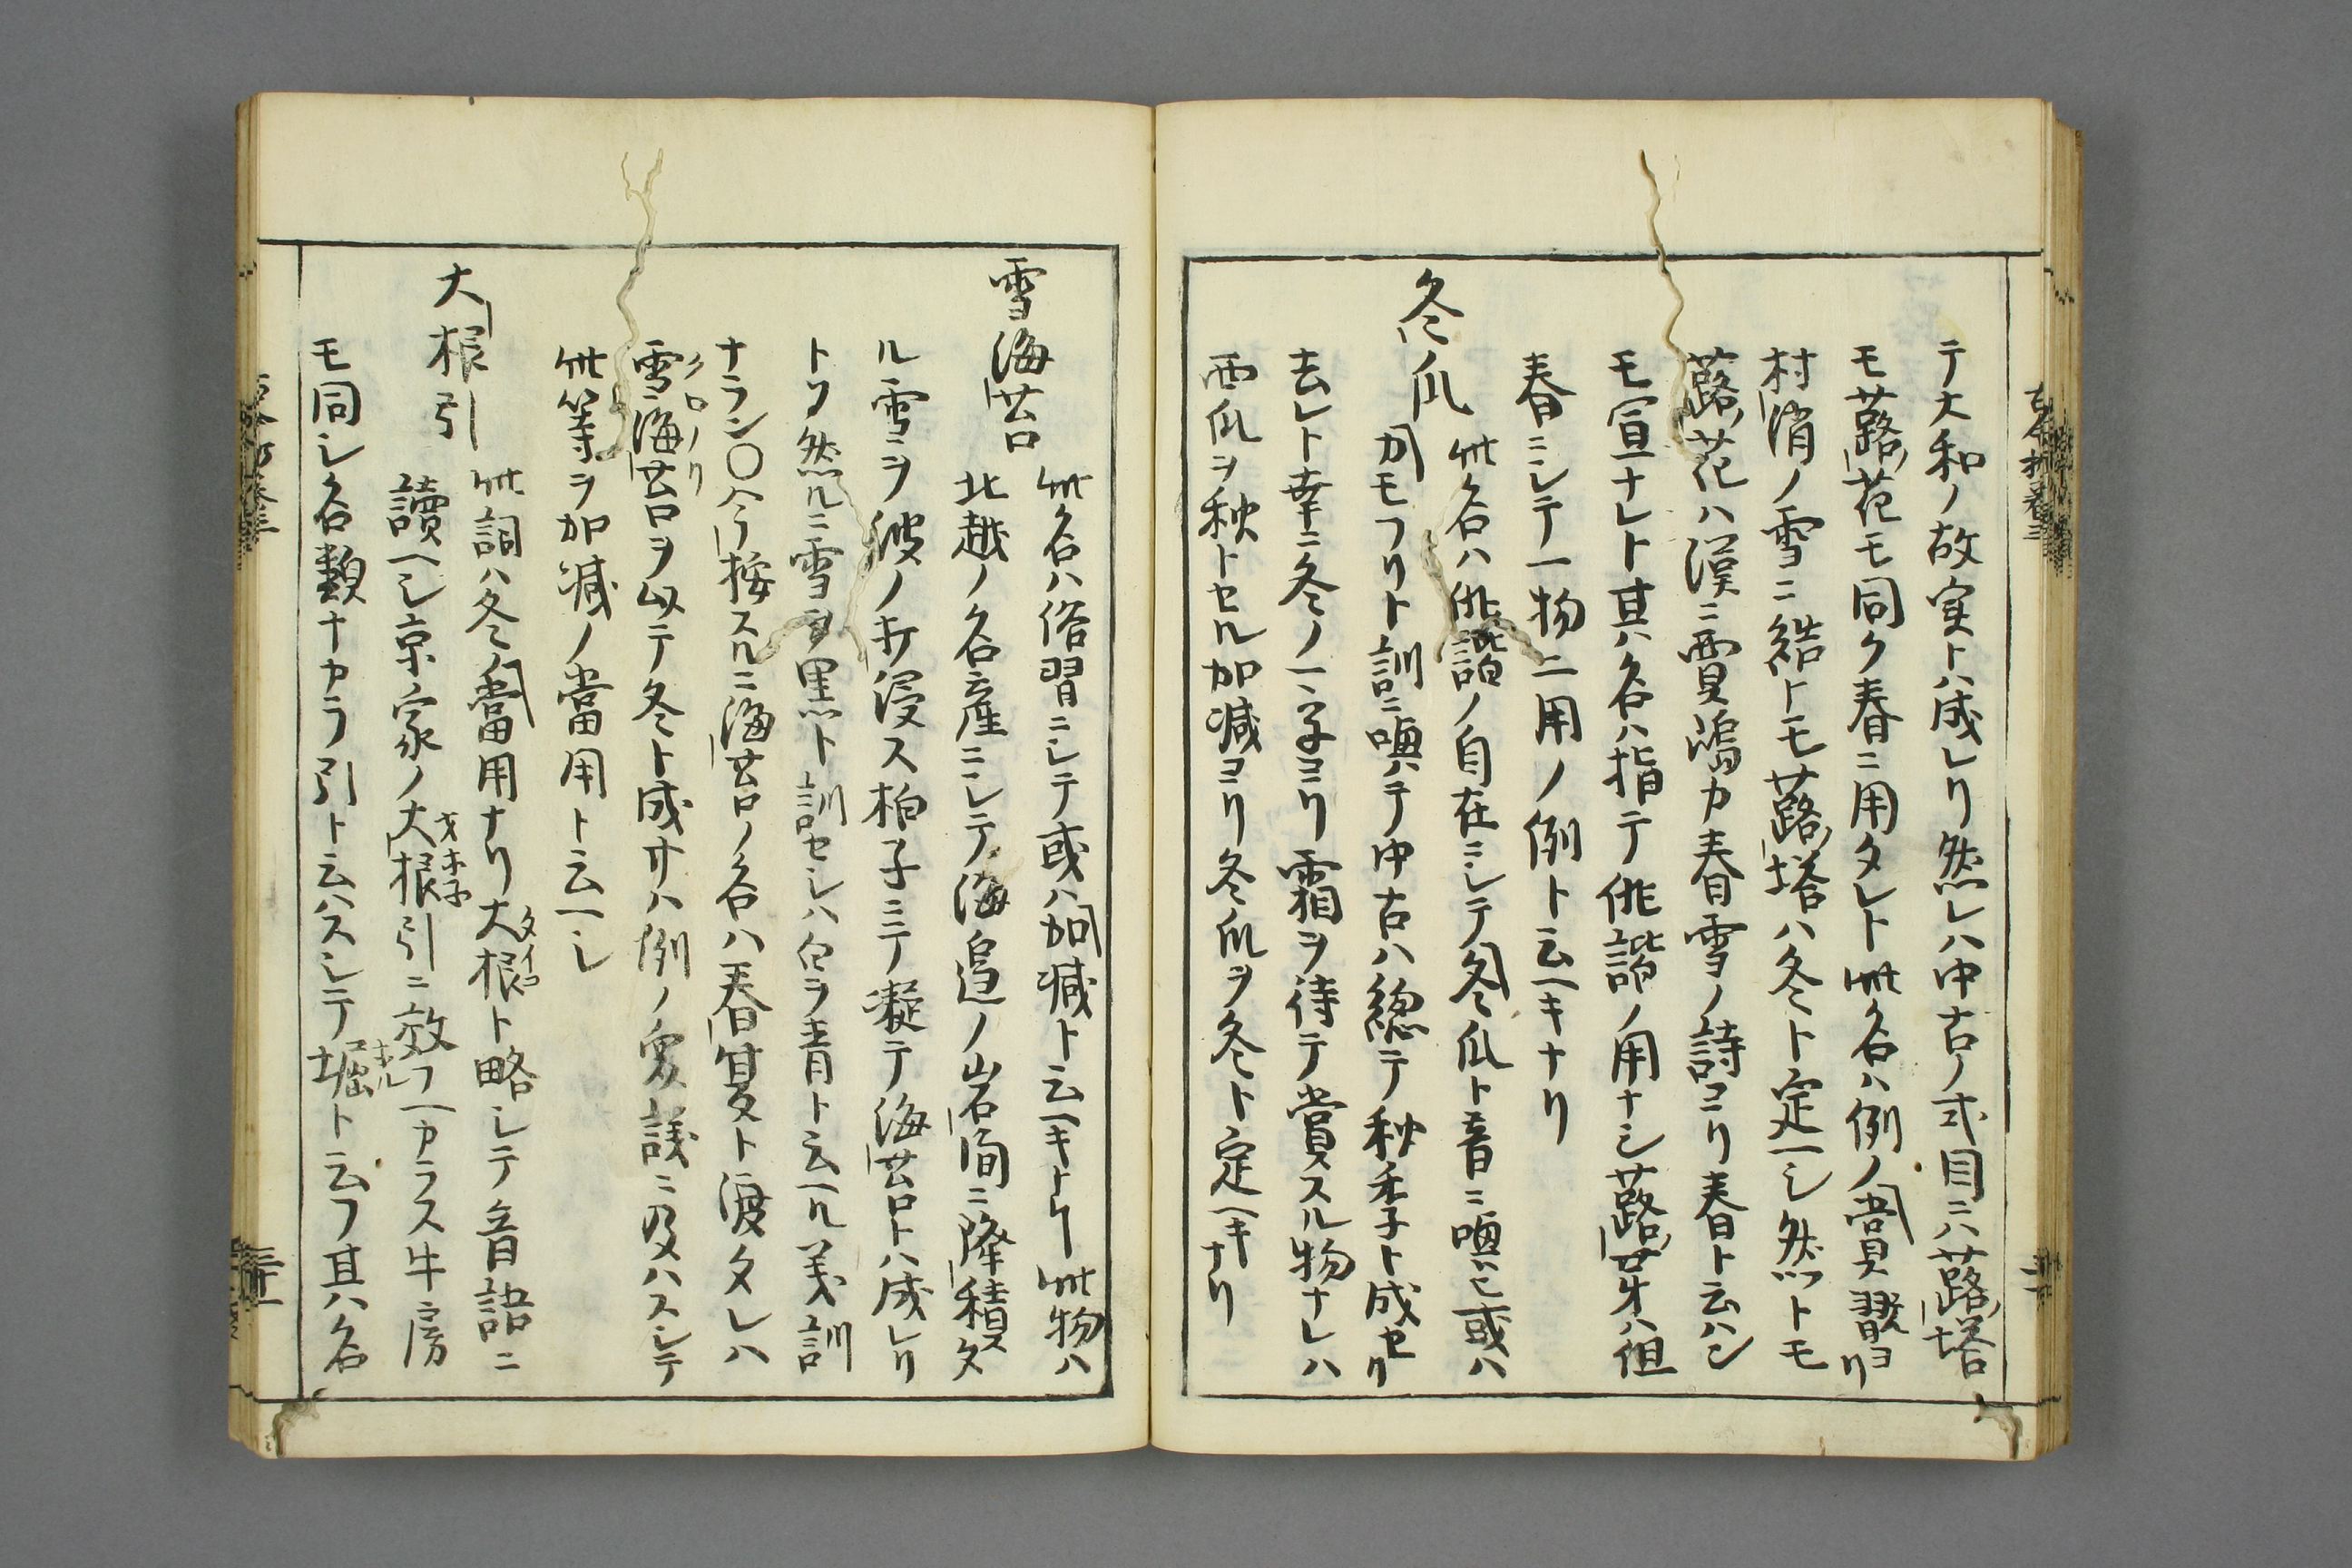 テ大和ノ故実トハ成レリ然レハ中古ノ式目ニハ蕗ノ塔
モ蕗ノ花モ同ク春ニ用タレト此名ハ例ノ賞翫ヨリ
村消ノ雪ニ結トモ蕗ノ塔ハ冬ト定ヘシ然ットモ
蕗ノ花ハ漢ニ賈島カ春雪ノ詩ヨリ春ト云ハン
モ宣ナレト其ハ名ハ指テ俳諧ノ用ナシ蕗ノ芽ハ但
春ニシテ一物二用ノ例ト云ヘキナリ
冬瓜
此名ハ俳諧ノ自在ニシテ冬瓜ト音ニ喚ヒ或ハ
カモフリト訓ニ喚ハテ中古ハ総テ秋季ト成セリ
去レト幸ニ冬ノ一字ヨリ霜ヲ待テ賞スル物ナレハ
西瓜ヲ秋トセル加減ヨリ冬瓜ヲ冬ト定ヘキナリ
雪海苔
此名ハ俗習ニシテ或ハ加減ト云ヘキトリ此物ハ
北越ノ名産ニシテ海辺ノ岩間ニ降積タ
ル雪ヲ彼ノ汐ノ浸ス拍子ニテ凝テ海苔トハ成レリ
トソ然ルニ雪ヲ黒ト訓セシハ白ヲ青ト云ヘル義訓
ナラン〇今按スルニ海苔ノ名ハ春夏ト渡タレハ
雪海苔ヲ以テ冬ト成サハ例ノ衆議ニ及ハスシテ
クロノリ
此等ヲ加減ノ當用ト云ヘシ
大根引
此詞ハ冬ノ當用ナリ大根ト略シテ音語ニ
タイコ
讀ヘシ京家ノ大根引ニ效フヘカラス牛房
オホネ
モ同シ名類ナカラ引ト云ハスシテ堀ト云フ其ハ名
ホル